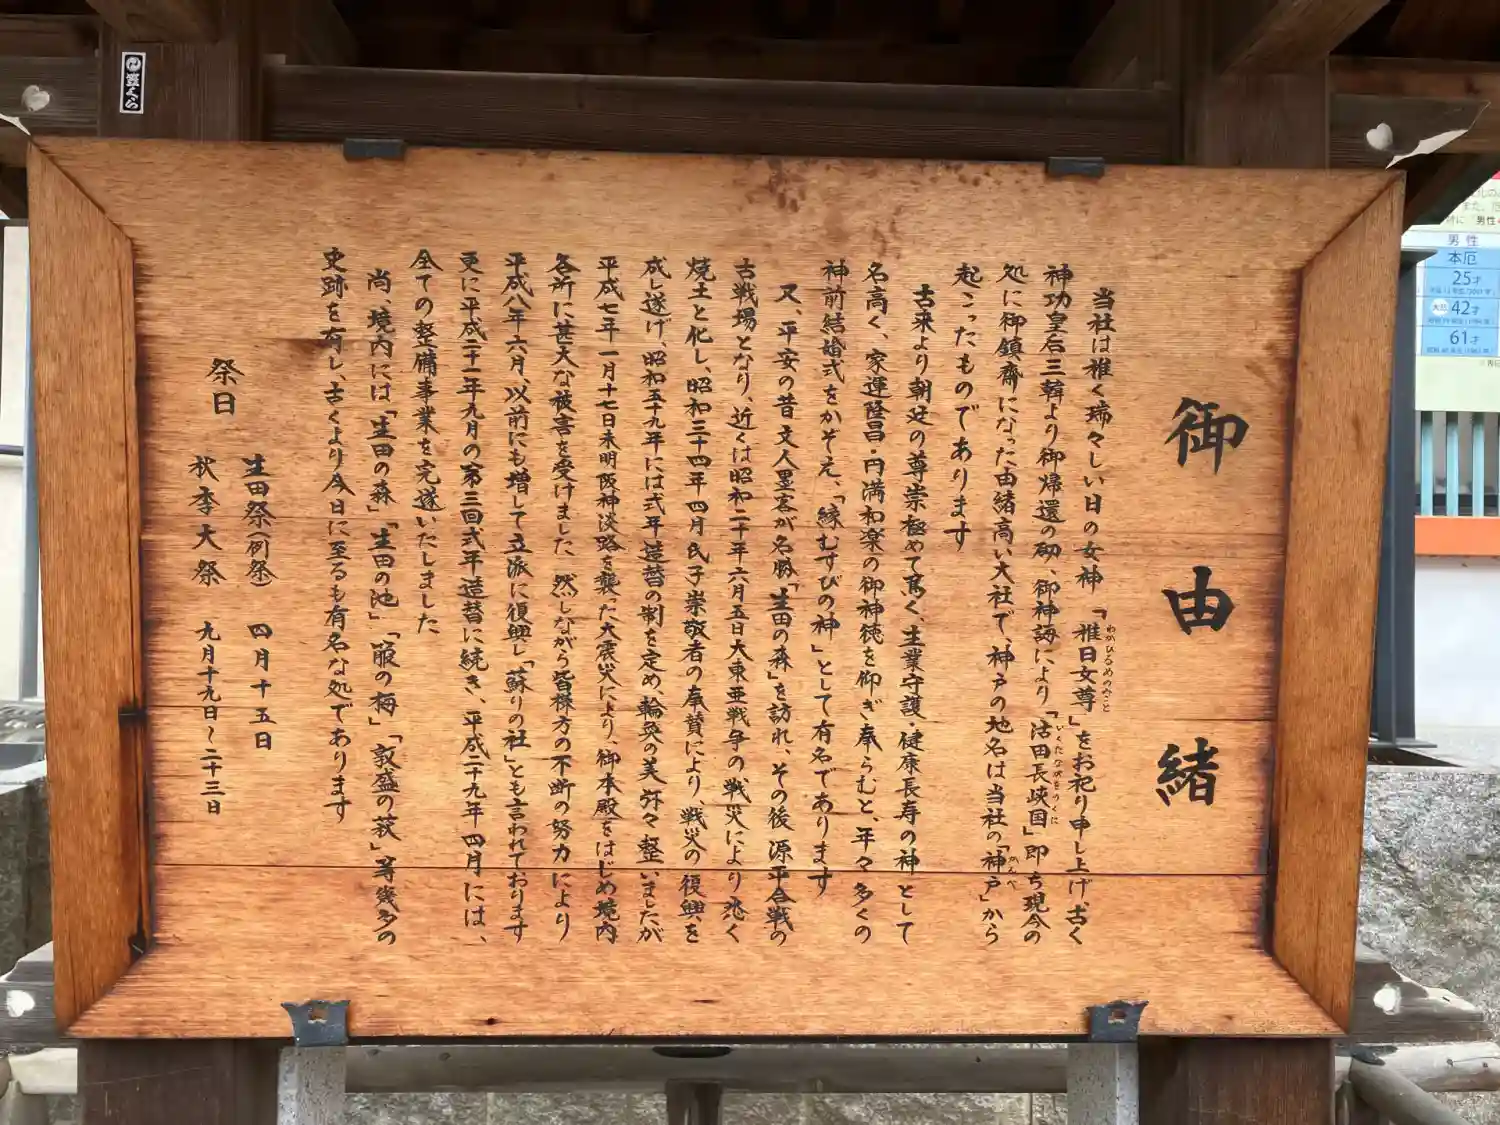 御由緒
当社は稚く瑞々しい日の女神「稚日女尊」をお祀り申し上げ、古く
わかひるめのみこと
神功皇后三韓より御帰還の砌、御神誨により「活田長峡国」即ち現今の
いくたながをのくに
処に御鎮齋になった由緒高い大社で、神戸の地名は当社の「神戸」から
かんべ
起こったものであります
古来より朝廷の尊崇極めて篤く、生業守護・健康長寿の神として
名高く、家運隆昌・円満和楽の御神徳を仰ぎ奉らむと、年々多くの
神前結婚式をかぞえ、「縁むすびの神」として有名であります
又、平安の昔文人墨客が名勝「生田の森」を訪れ、その後源平合戦の
古戦場となり、近くは昭和二十年六月五日大東亜戦争の戦災により悉く
焼土と化し、昭和三十四年四月氏子崇敬者の奉賛により、戦災の復興を
成し遂げ、昭和五十九年には式年造替の制を定め、輪奐の美弥々整いましたが
平成七年一月十七日未明阪神淡路を襲った大震災により、御本殿をはじめ境内
各所に甚大な被害を受けました 然しながら皆様方の不断の努力により
平成八年六月、以前にも増して立派に復興し「蘇りの社」とも言われております
更に平成二十一年九月の第三回式年造替に続き、平成二十九年四月には、
全ての整備事業を完遂いたしました
尚、境内には「生田の森」「生田の池」「箙の梅」「敦盛の萩」等幾多の
史跡を有し、古くより今日に至るも有名な処であります
祭日 生田祭(例祭) 四月十五日
秋季大祭 九月十九日〜二十三日
男性
本厄
25才
42才
61才